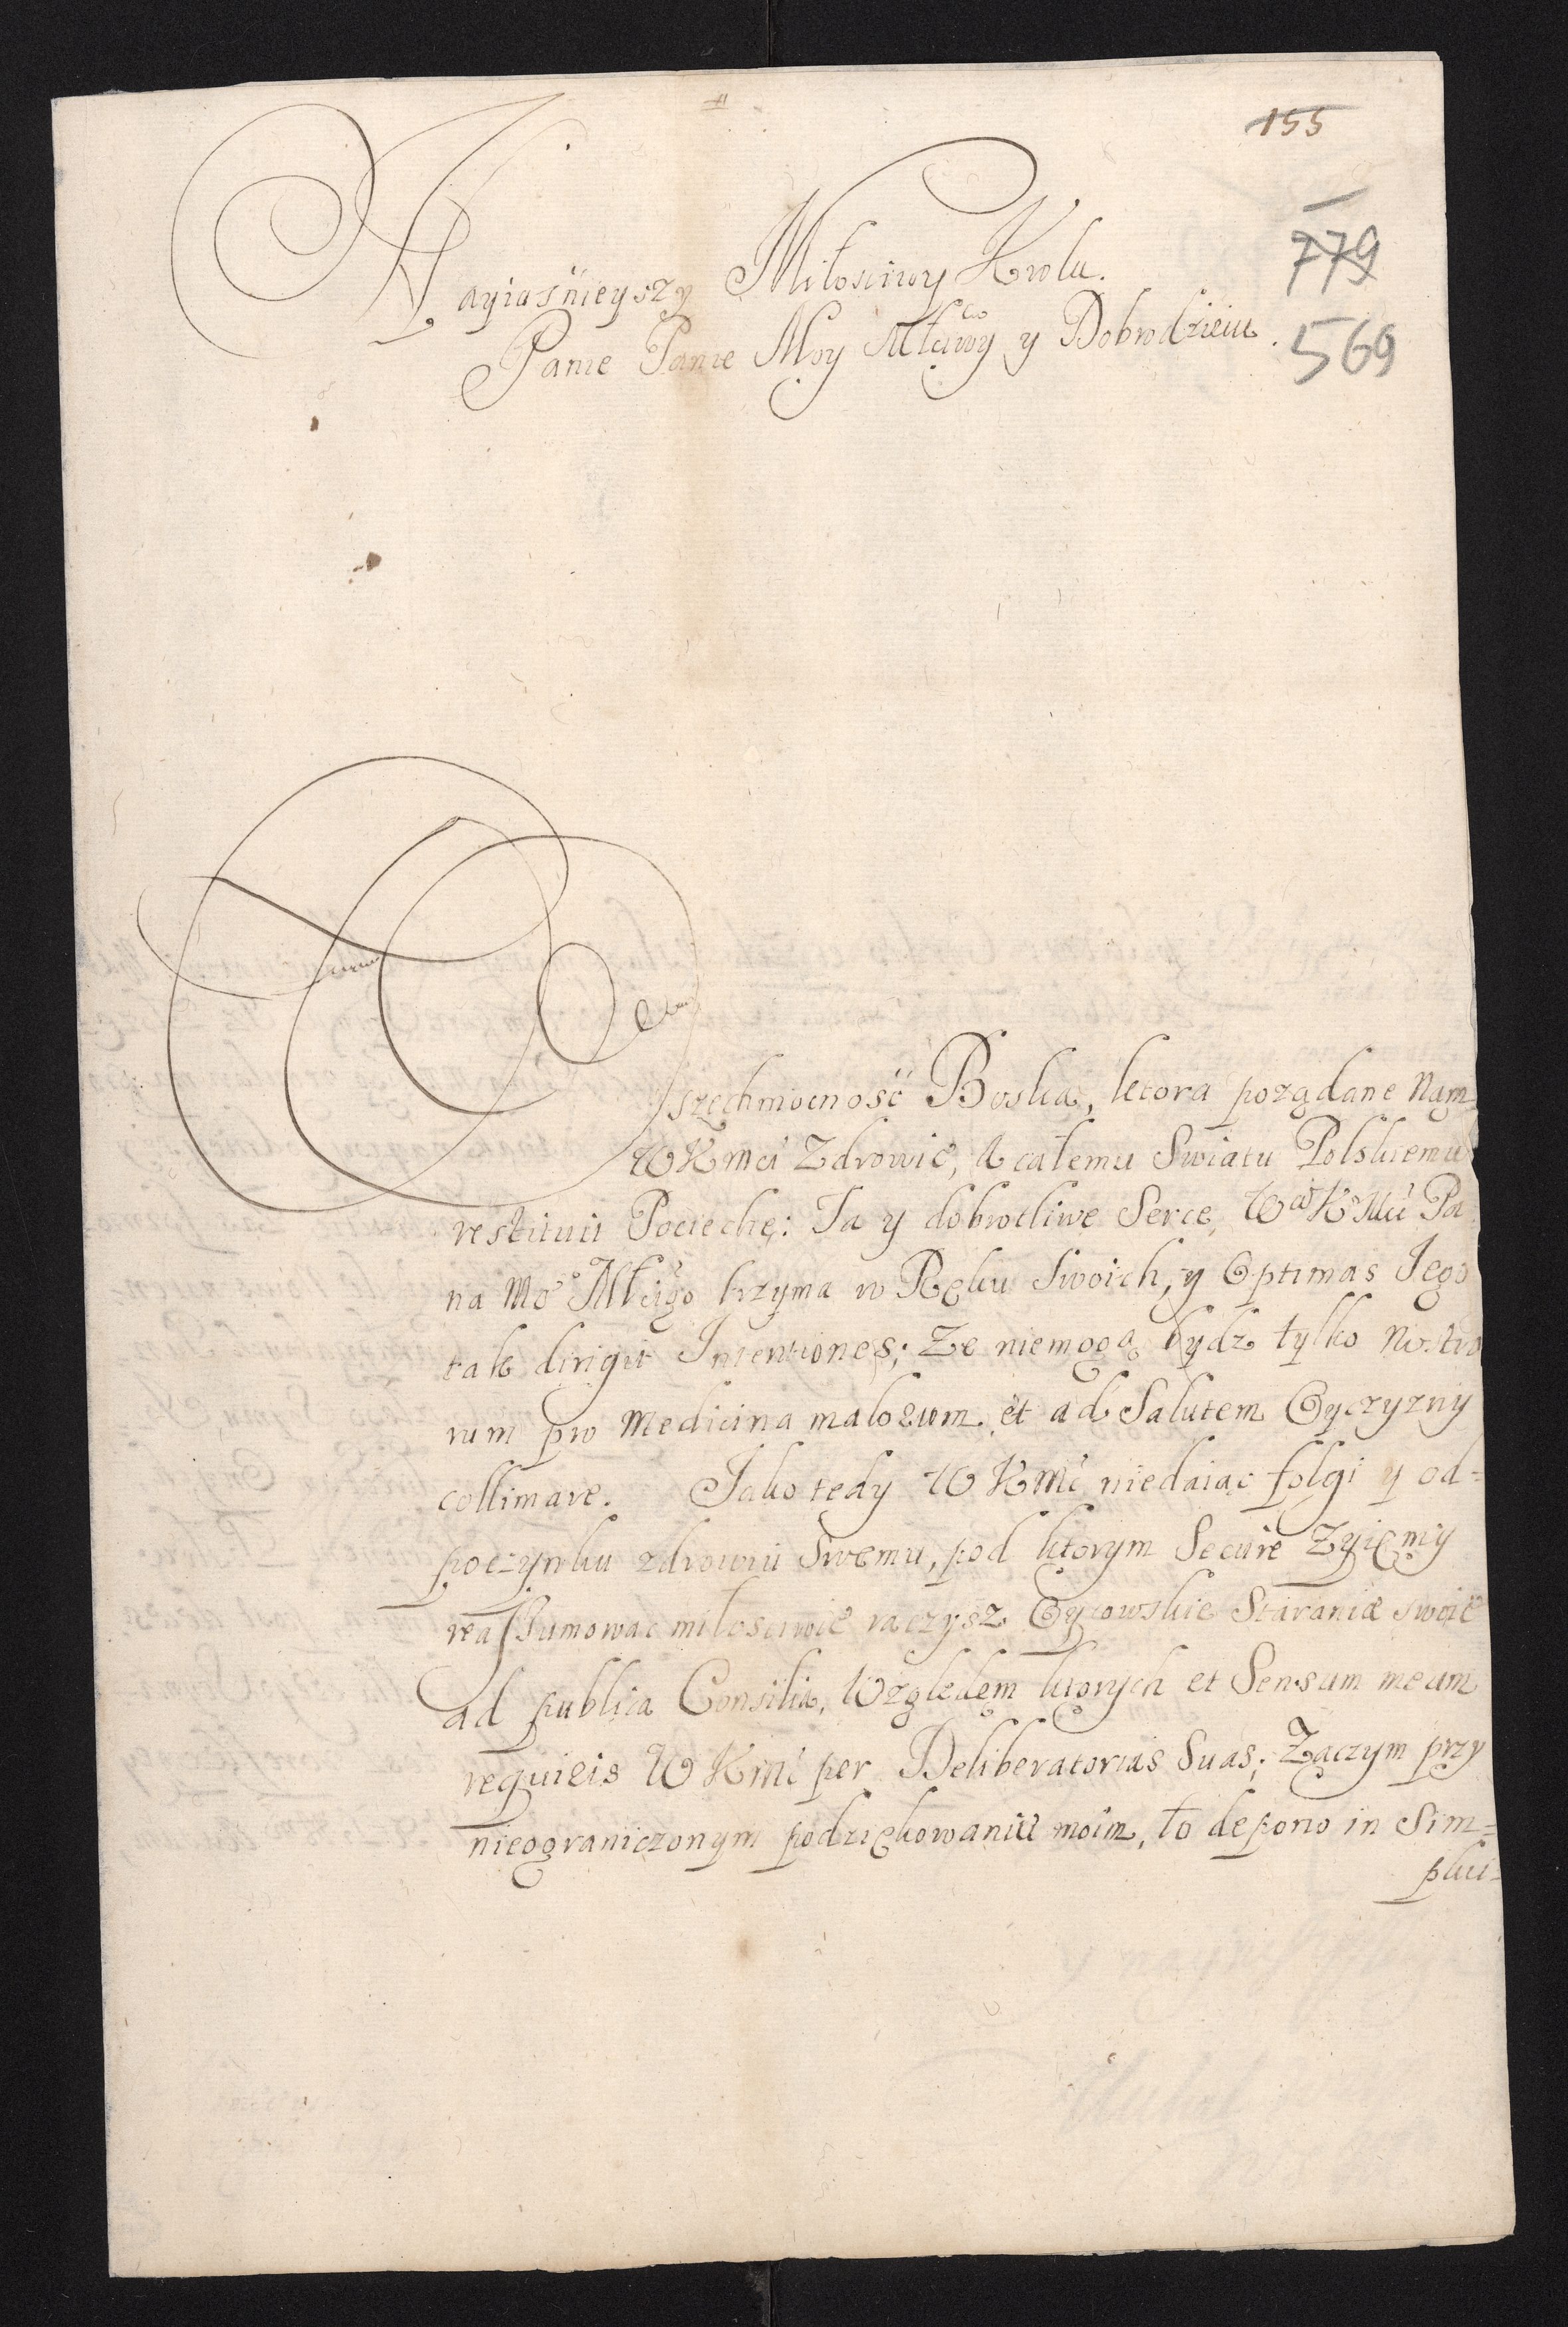 155
779
569
Nayiaśnieyszy Miłosciwy Krolu.
Panie Panie Moy Młciwy y Dobrodzieiu.
Wszechmocność Boska, ktora pożądane Nam
WKMci Zdrowie, A całemu Swiatu Polskiemu
restituit Pociechę: Ta y dobrotliwe Serce, WKMci Pa
na Mo Młćigo trzyma w Ręku Swoich, y Optimas Jego
tak dirigit Intentiones; Ze niemogą bydz tylko Nostro
rum pro Medicina malorum et ad Salutem Oyczyzny
collimare. Jako tedy WKMć niedaiąc folgi y od=
poczynku zdrowiu Swemu, pod ktorym Secure Zyiemy
reassumowac miłosciwie raczysz Oycowskie Starania swoie
ad publica Consilia, Względem ktorych et Sensum meum
requiris WKMć per Deliberatorias Suas; Zaczym przy
nieograniczonym podziękowaniu moim, to depono in Sim=
plici=